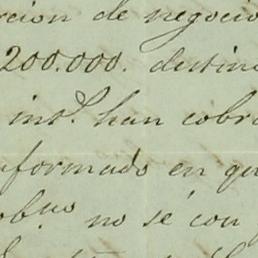 rcion de negocio
200.000. destina
inst. han cobra
nformado en qu
no sé con